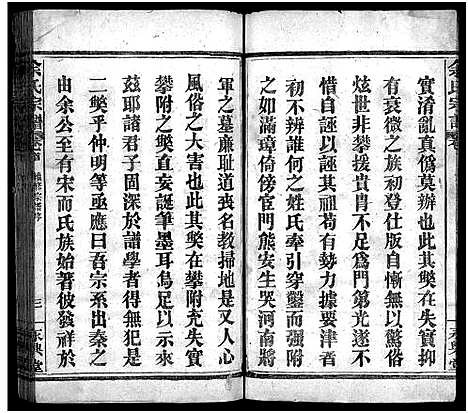 實淆亂真僞莫辦也此其獘在失實
有衰微之族初登仕版自慚無以誇
炫世並非攀援貴冑不足爲門第光遂
不憚詆其祖苟有勢力據要津者
初不辨誰何之姓氏牽引穿鑿而爲
之如滿璋倚傍宦門熊安生哭河南將
軍之墓廉耻道喪名教掃地是又人心
風俗之大害也此其獘在攀附夫失實
攀附之獘直妄誕筆墨耳烏足以示
茲耶諸君子固深於譜學者得無犯是
二獘乎仲明等亟應曰吾宗系出秦之
由余公至有宋而氏族始著彼發祥於
余氏宗譜
卷首
三
永興堂
余氏宗譜
永興堂